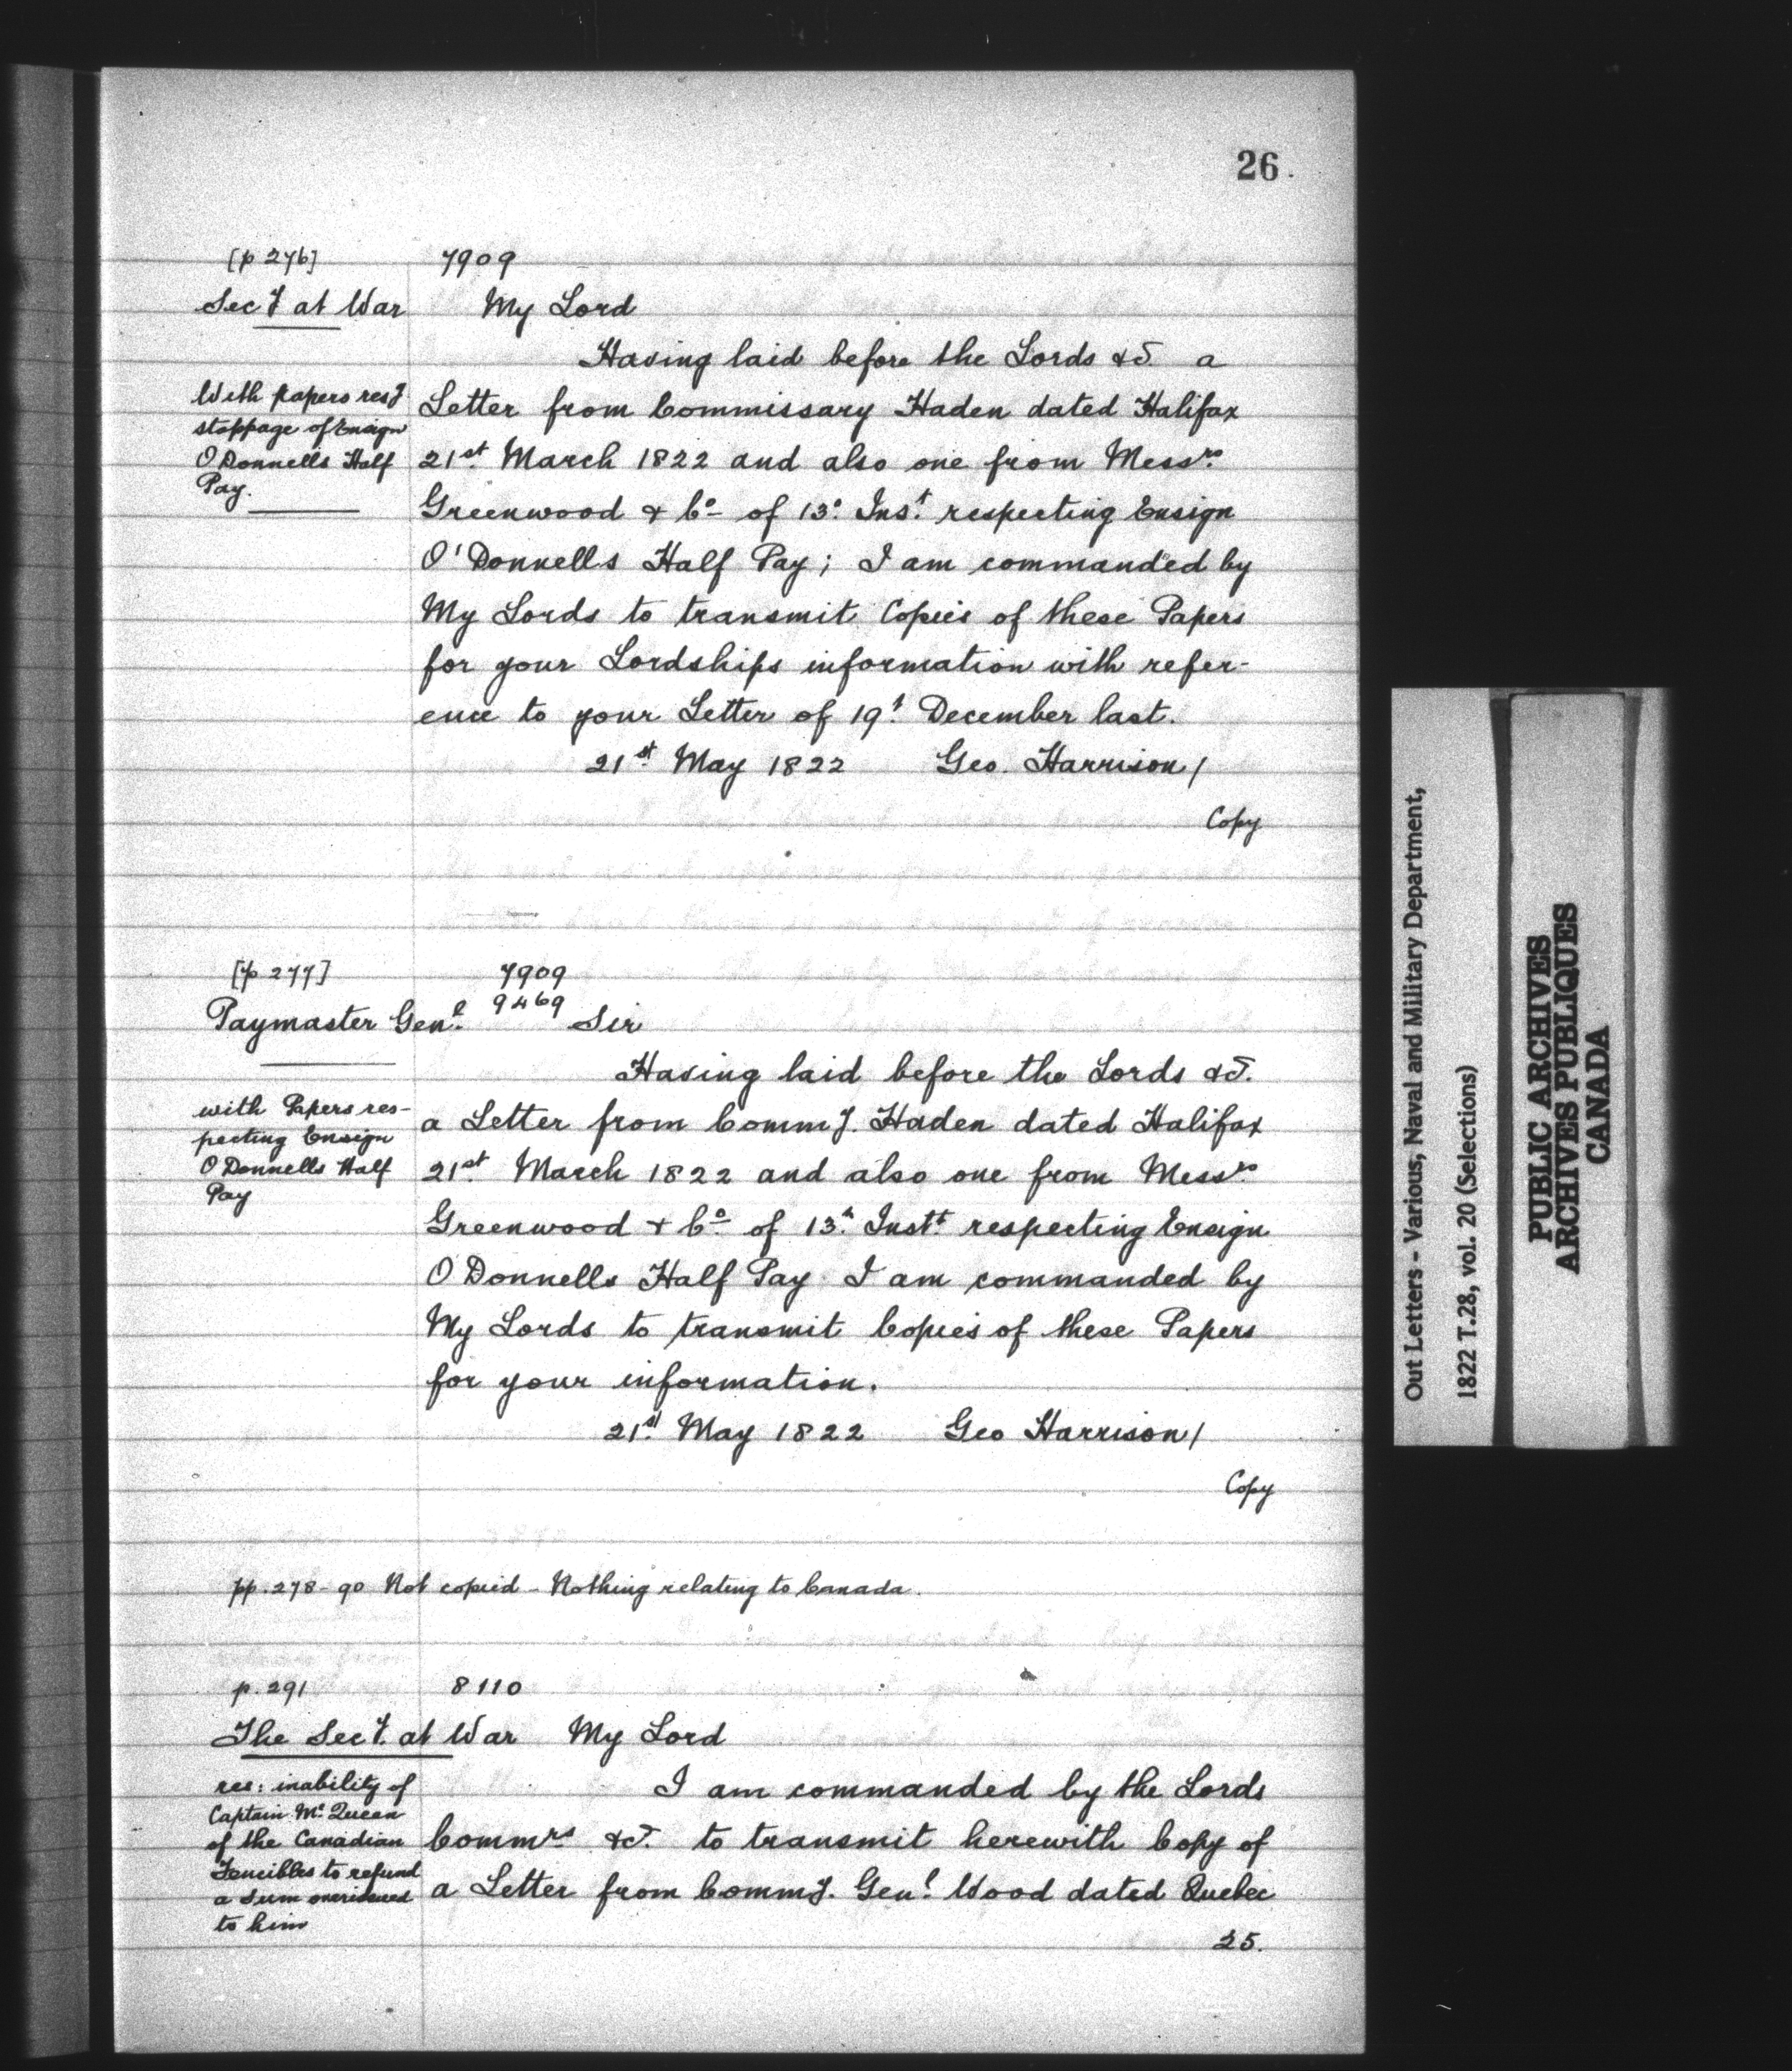 26.
[p 276]
7909
Secy at War
My Lord
Having laid before the Lords &c. a
With papers resy
stoppage of Ensign
O Donnells Half
Pay.
Letter from Commissary Haden dated Halifax
21st March 1822 and also one from Messrs
Greenwood & Co of 13o. Inst. respecting Ensign
O'Donnells Half Pay; I am commanded by
My Lords to transmit Copies of these Papers
for your Lordships information with refer-
ence to your Letter of 19t December last.
21st May 1822 Geo. Harrison/
Copy
[p 277]
7909
9469
Paymaster Genl.
Sir
Having laid before the Lords &c.
with Papers res-
pecting Ensign
O Donnells Half
Pay
a Letter from Commy. Haden dated Halifax
21st March 1822 and also one from Messrs
Greenwood & Co of 13th Instt. respecting Ensign
O Donnells Half Pay I am commanded by
My Lords to transmit Copies of these Papers
for your information.
21st May 1822 Geo Harrison/
Copy
pp. 278-90 Not copied - Nothing relating to Canada.
p. 291
8110
The Secy. at War
My Lord
res: inability of
Captain Mc Queen
of the Canadian
Fencibles to refund
a sum overissued
to him
I am commanded by the Lords
Commrs &c. to transmit herewith Copy of
a Letter from Commy. Genl. Wood dated Quebec
25.
Out Letters - Various, Naval and Military Department,
1822 T.28, vol. 20 (Selections)
PUBLIC ARCHIVES
ARCHIVES PUBLIQUES
CANADA